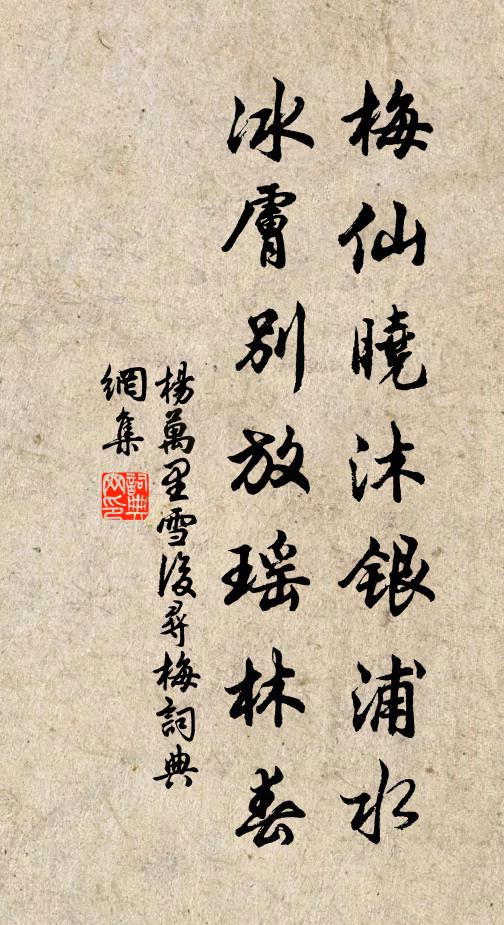 梅仙曉沐銀浦水
冰膚別放瑶林春
楊萬里雪後尋梅詞典
網集
詞典
網印